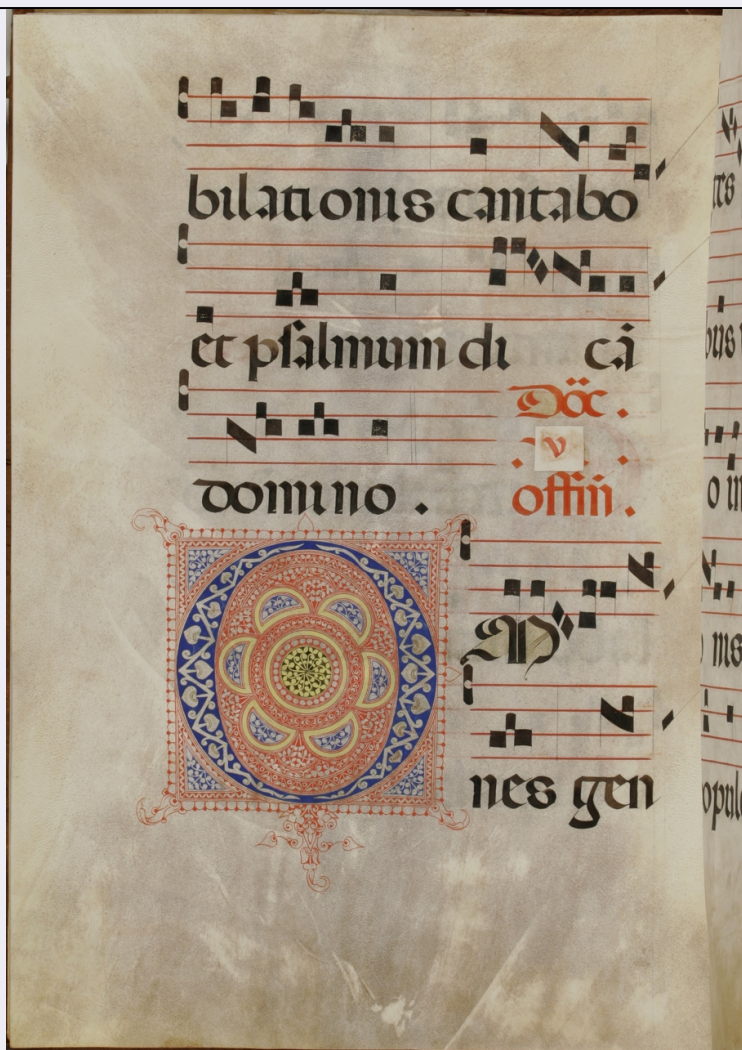 bilationis cantabo
et pſalmum di cā
Dōc .
. v .
domino . offiñ .
O M
nes gen